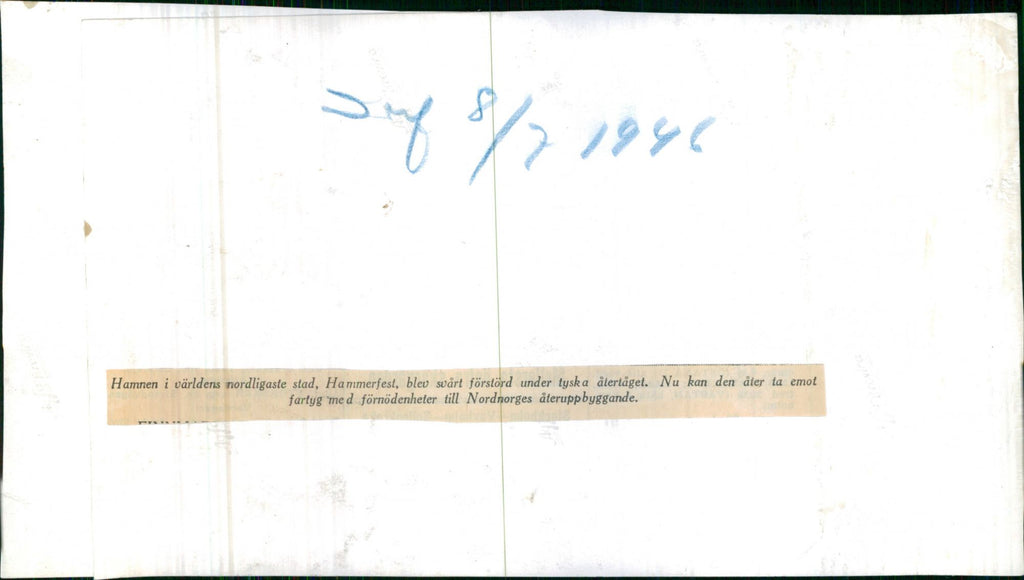 8/7 1946
Hamnen i världens nordligaste stad, Hammerfest, blev svårt förstörd under tyska återtåget. Nu kan den åter ta emot
fartyg med förnödenheter till Nordnorges återuppbyggande.